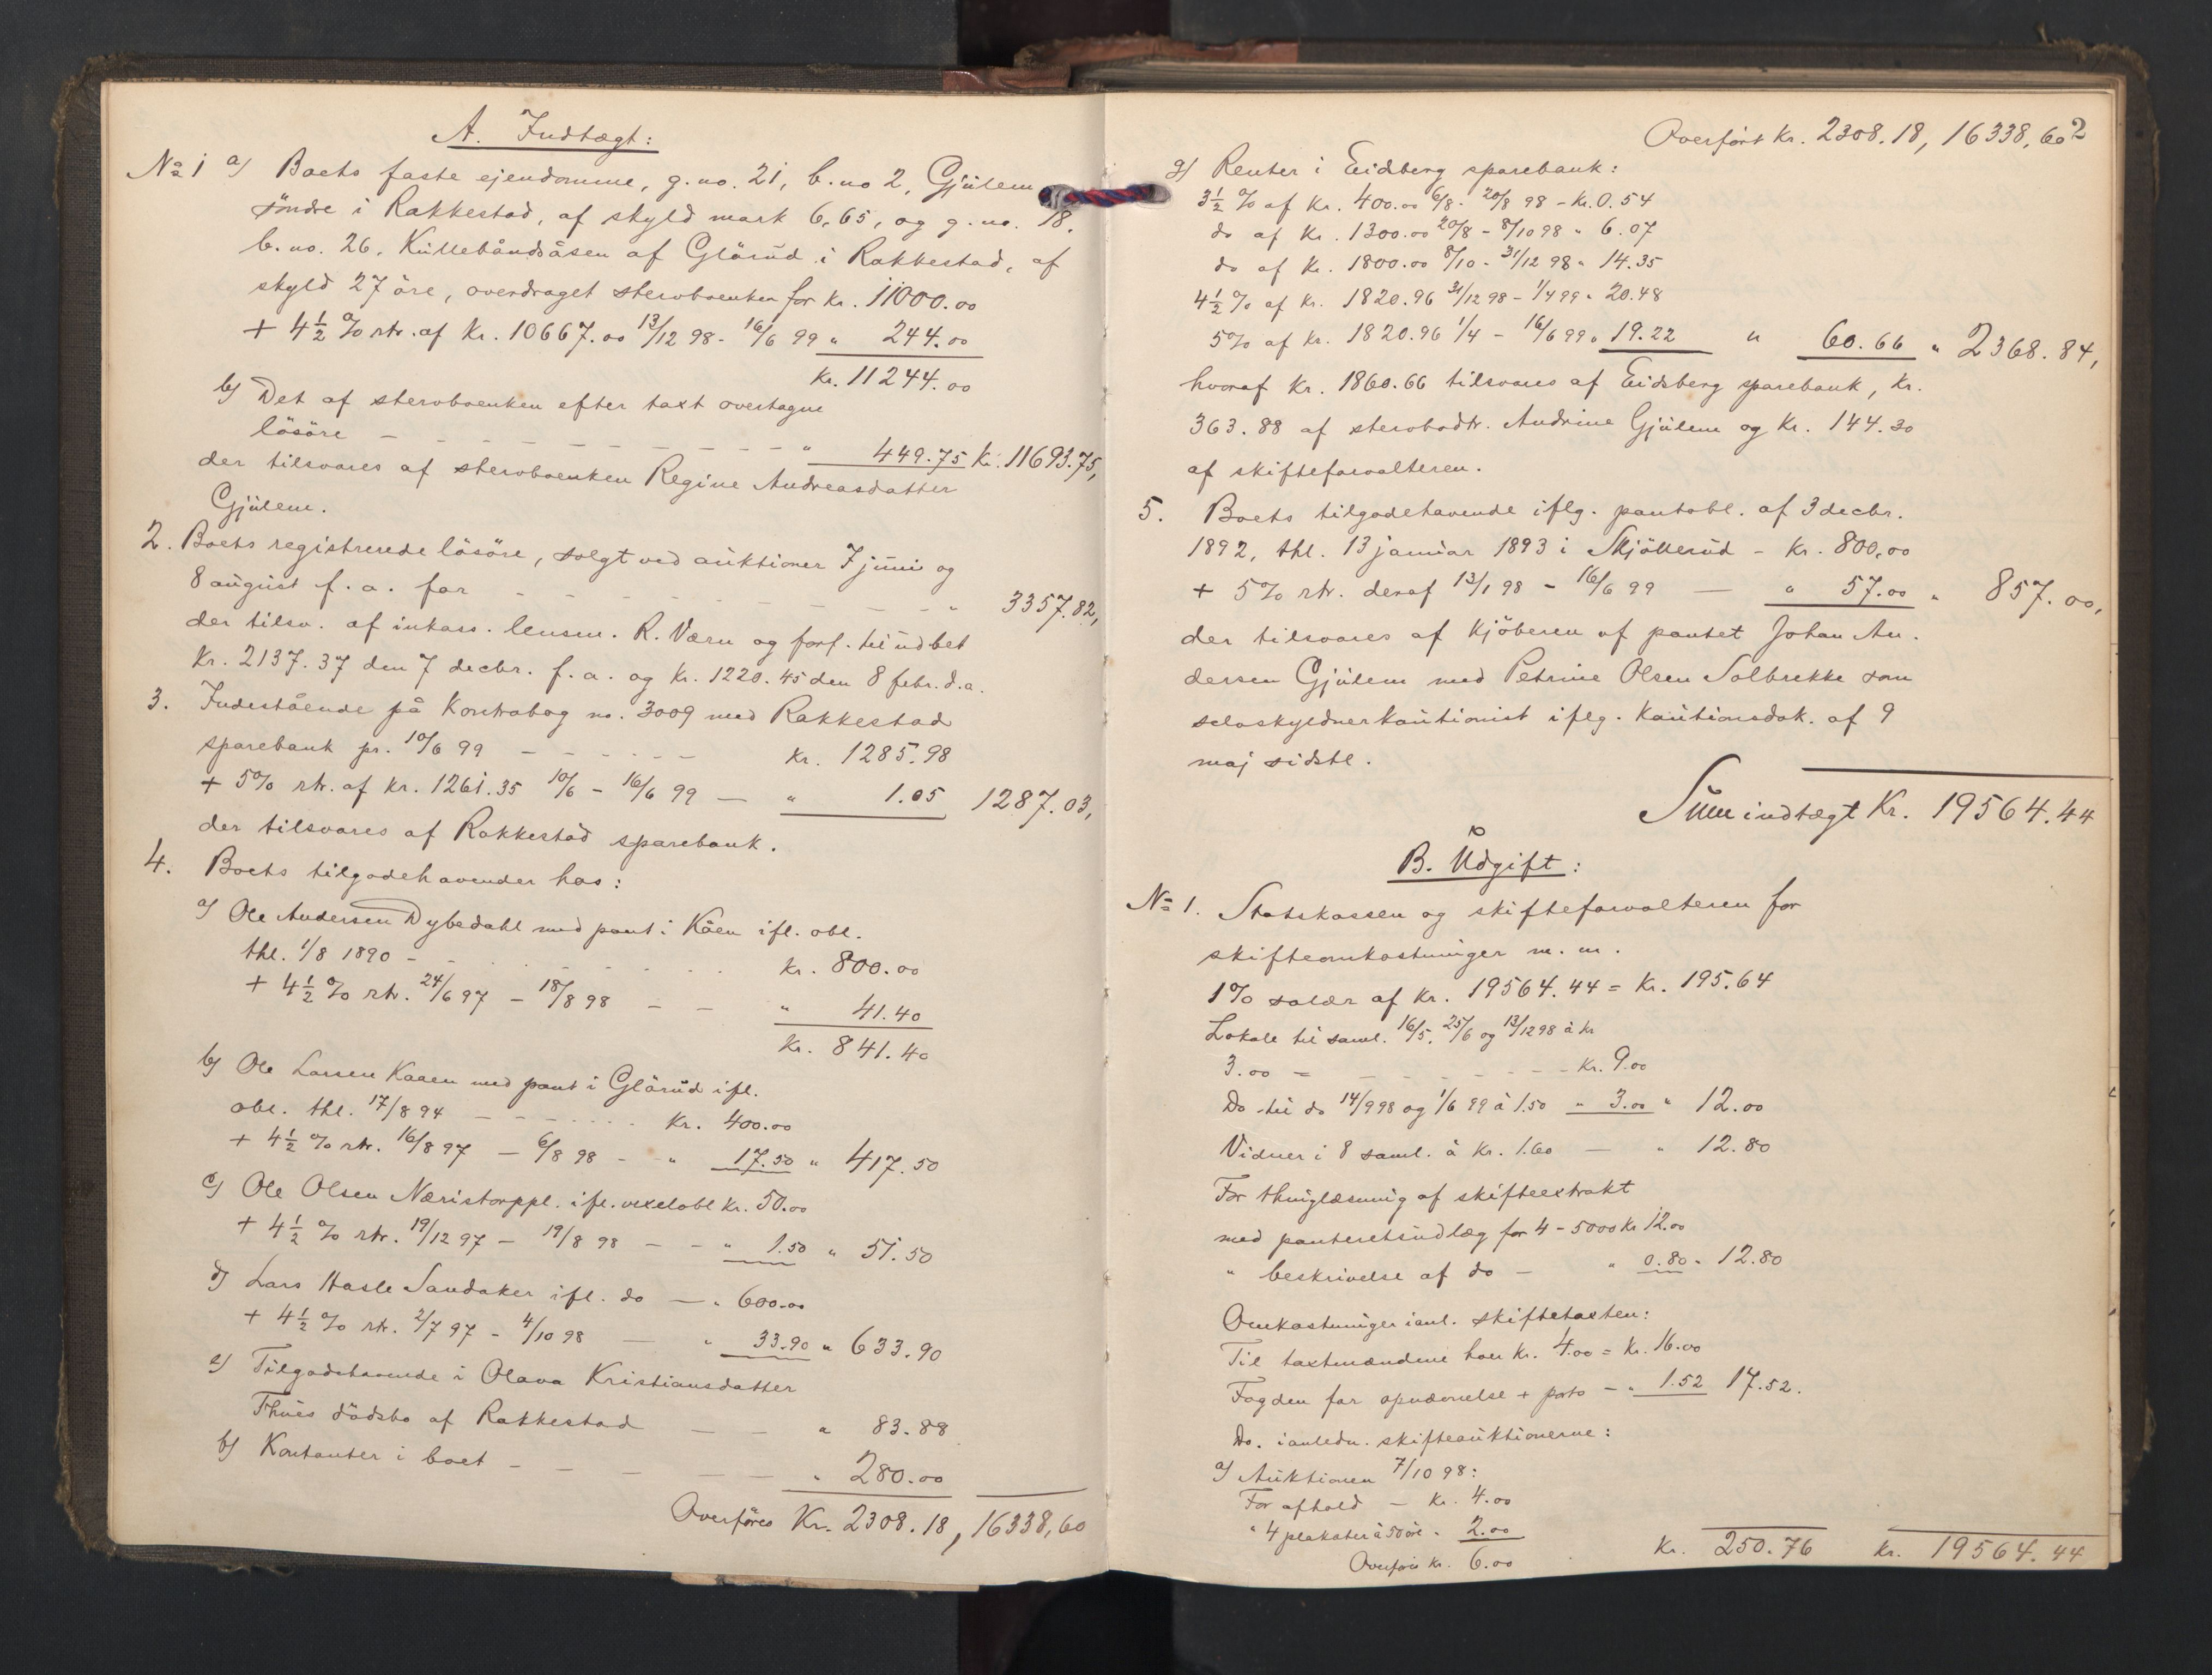 A. Indtægt:
No 1 a) Boets faste ejendomme, g.no. 21, b.no 2, Gjülem
söndre i Rakkestad, af skyld mark 6,65, og g.no. 18,
b.no. 26, Küllebåndsåsen af Glörüd i Rakkestad, af
skyld 27 öre, overdraget stervboenken for kr. 11000.00
+ 4 1/2 % rtr. af Kr. 10667.00 13/12 98 - 16/6 99 " 244.00
Kr. 11244.00
b) Det af stervboenken efter taxt overtagne
lösöre - - - - " 449.75 Kr. 11693.75,
der tilsvares af stervboenken Regine Andreasdatter
Gjülem.
2. Boets registrerede lösöre, solgt ved auktioner 7 jüni og
8 august f.a. for - - - - " 3357.82,
der tilsv. af inkass. lensm. R. Værn og forf. til üdbet
Kr. 2137.37 den 7 decbr. f.a. og Kr. 1220.45 den 8 febr. d.a.
3. Indestående på Kontrabog no. 3009 med Rakkestad
sparebank pr. 10/6 99 - - - - Kr. 1285.98
+ 5% rtr. af kr. 1261.35 10/6 - 16/6 99 - " 1.05 1287.03,
der tilsvares af Rakkestad sparebank.
4. Boets tilgodehavender hos:
a) Ole Andersen Dybedahl med pant i Kåen ifl. obl.
thl. 1/8 1890 - - - - Kr. 800.00
+ 4 1/2 % rtr. 24/6 97 - 18/8 98 - - " 41.40
Kr. 841.40
b) Ole Larsen Kaaen med pant i Glörüd ifl.
obl. thl. 17/8 94 - - - - Kr. 400.00
+ 4 1/2 % rtr. 16/8 97 - 6/8 98 - " 17.50 " 417.50
c) Ole Olsen Næristorppl. ifl. vexelobl Kr. 50.00
+ 4 1/2 % rtr. 19/12 97 - 19/8 98 - - " 1.50 " 51.50
d) Lars Hasle Sandaker ifl. do - " 600.00
+ 4 1/2 % rtr. 2/7 97 - 4/10 98 - " 33.90 " 633.90
e) Tilgodehavende i Olava Kristiansdatter
Thues dödsbo af Rakkestad - - " 83.88
f) Kontanter i boet - - - - " 280.00
Overföres Kr. 2308.18, 16338,60
2
Overført Kr. 2308.18, 16338,60
g) Renter i Eidsberg sparebank:
3 1/2 % af Kr. 400.00 6/8 - 20/8 98 - Kr. 0.54
do af Kr. 1300.00 20/8 - 8/10 98 " 6.07
do af Kr. 1800.00 8/10 - 31/12 98 " 14.35
4 1/2 % af Kr. 1820.96 31/12 98 - 1/4 99 " 20.48
5% af Kr. 1820.96 1/4 - 16/6 99 " 19.22 " 60.66 " 2368.84,
hvoraf Kr. 1860.66 tilsvares af Eidsberg sparebank, Kr.
363.88 af stervbodtr. Andrine Gjülem og Kr. 144.30
af skifteforvalteren.
5. Boets tilgodehavende iflg. pantobl. af 3 decbr.
1892, thl. 13 januar 1893 i Skjöllerüd - Kr. 800,00
+ 5% rtr. deraf 13/1 98 - 16/6 99 - " 57.00 " 857.00,
der tilsvares af kjöberen af pantet Johan An-
dersen Gjülem med Petrine Olsen Solbrekke som
selvskyldnerkautionist iflg. kautionsdok. af 9
maj sidstl.
Sum indtægt Kr. 19564.44
B. Udgift:
No 1. Statskassen og skifteforvalteren for
skifteomkostninger m.m.
1% salær af Kr. 19564.44 = Kr. 195.64
Lokale til saml. 16/5, 25/6 og 13/12 98 à Kr
3.00 = - - - - Kr. 9.00
Do til do 14/9 98 og 1/6 99 à 1.50 " 3.00 " 12.00
Vidner i 8 saml. à Kr. 1.60 - " 12.80
For thinglæsning af skifteextrakt
med panteretsudlæg for 4-5000 Kr 12.00
" beskrivelse af do - " 0.80 " 12.80
Omkostninger ianl. skiftetaxten:
Til taxtmændene hver Kr. 4.00 = Kr. 16.00
Fogden for opnævnelse + porto - " 1.52 17.52.
Do. ianledn. skifteauktionerne:
a) Auktionen 7/10 98:
For afhold - Kr. 4.00
" 4 plakater à 50 öre " 2.00
Overføres Kr. 6.00 Kr. 250.76 Kr. 19564.44